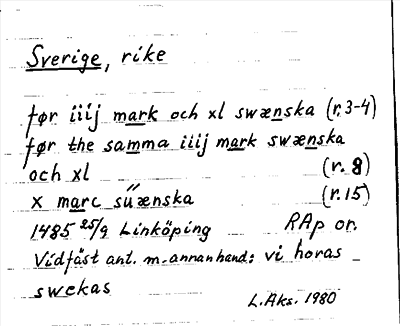 Sverige, rike
før iiij mark och xl swænska (r. 3-4)
før the samma iiij mark swænska
och xl (r. 8)
x marc süænska (r. 15)
1485 25/9 Linköping RAp or.
Vidfäst ant. m. annan hand: vi horas
swekas
L.Aks. 1980